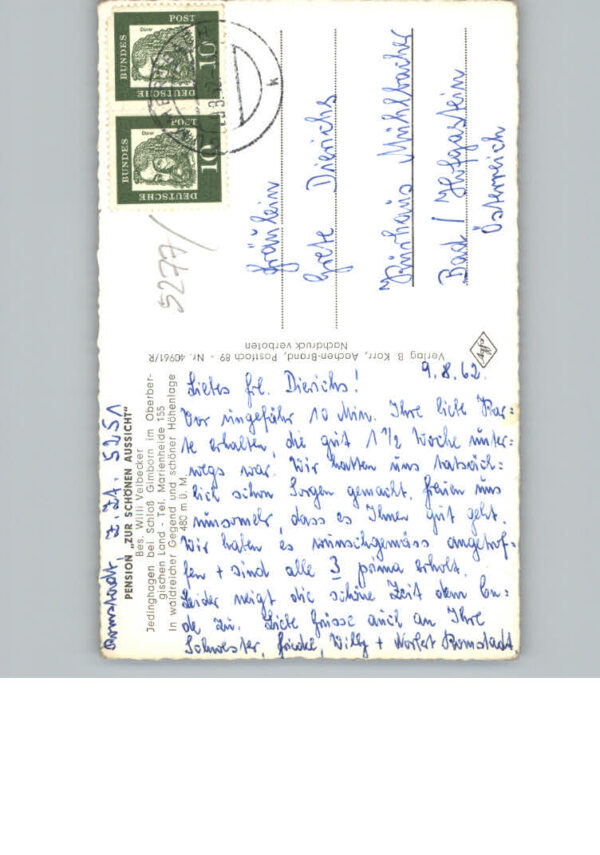 BUNDES
POST
Dürer
10
DEUTSCHE
BUNDES
POST
Dürer
10
DEUTSCHE
k
5277/
Fräulein
Grete Dierichs
Kurhaus Mühlbacher
Bad / Hofgastein
Österreich
Verlag B. Korr, Aachen-Brand, Postfach 89 - Nr. 40961/R
Nachdruck verboten
Agfa
PENSION „ZUR SCHÖNEN AUSSICHT"
Bes. Willi Velbecker
Jedinghagen bei Schloß Gimborn im Oberber-
gischen Land - Tel. Marienheide 155
In waldreicher Gegend und schöner Höhenlage
480 m ü. M.
Romstadt, z. Zt. 5251
9.8.62.
Liebes Frl. Dierichs!
Vor ungefähr 10 Min. Ihre liebe Kar-
te erhalten, die gut 1 1/2 Woche unter-
wegs war. Wir hatten uns tatsäch-
lich schon Sorgen gemacht, freuen uns
umsomehr, dass es Ihnen gut geht.
Wir haben es wunschgemäss angetrof-
fen + sind alle 3 prima erholt.
Leider neigt die schöne Zeit dem En-
de zu. Liebe Grüsse auch an Ihre
Schwester, Friedel, Willy + Norbert Romstadt